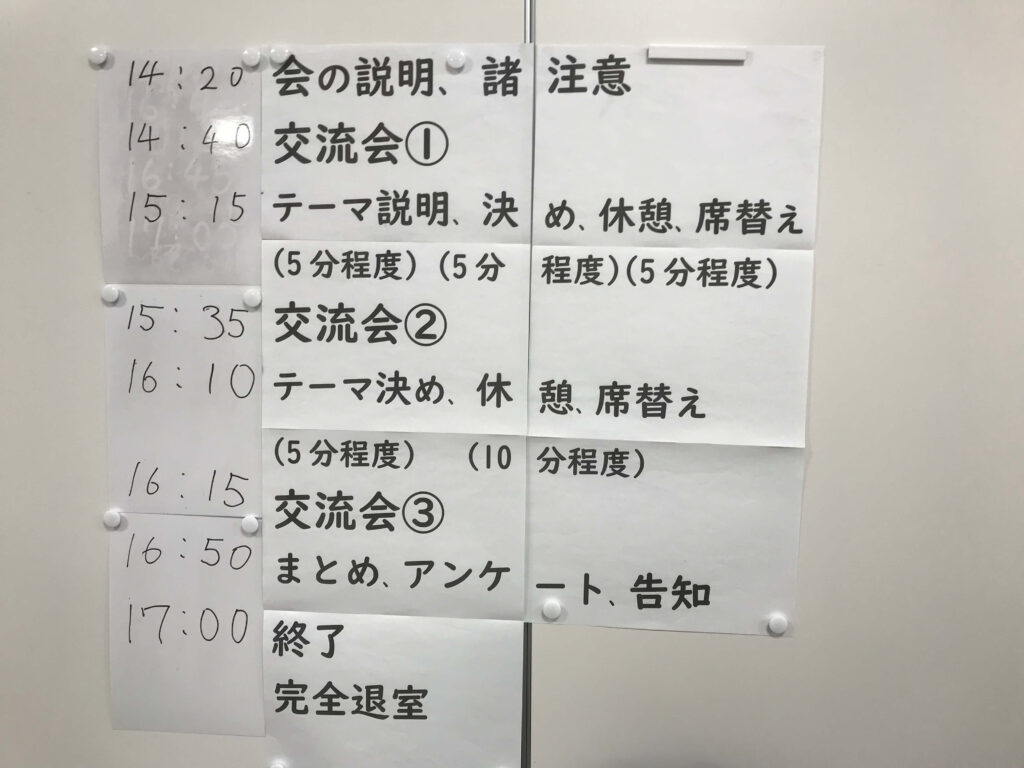 14:20 会の説明、諸注意
14:40 交流会①
15:15 テーマ説明、決め、休憩、席替え
(5分程度) (5分程度)(5分程度)
15:35 交流会②
16:10 テーマ決め、休憩、席替え
(5分程度) (10分程度)
16:15 交流会③
16:50 まとめ、アンケート、告知
17:00 終了
完全退室